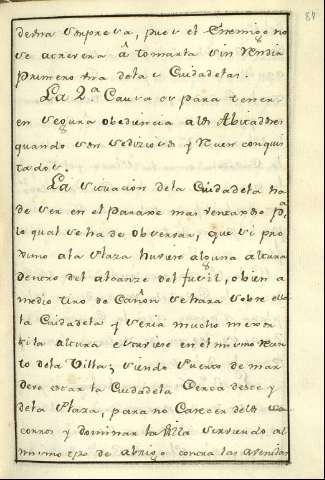 84
desna sorpresa, pues el Enemigo no
se atrevera á tomarla sin Rendir
primero una dela s Ciudadelas.
La 2.ª Causa es para tener
en segura obediencia alos Abitadores
quando son sediciosos y Nuev conquis
tados.
La situacion dela Ciudadela ha
de ser en el Parage mas ventajoso pª
lo qual se ha de observar, que si pro
ximo ala Plaza huviere alguna altura
dentro del alcanze del fusil, o bien a
medio tiro de Cañon se hara sobre ella
la Ciudadela y seria mucho mexor
si la altura estuviese en el mismo Rcin
to dela Villa; siendo Puerto de mar
deve estar la Ciudadela Cerca deste y
dela Plaza, para no Carecer delos So
corros y dominar la Villa sirviendo al
mismo tpo de abrigo contra las avenidas